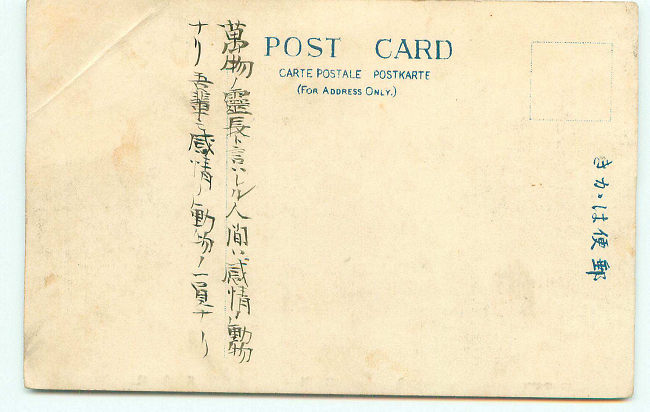 POST CARD
CARTE POSTALE POSTKARTE
(FOR ADDRESS ONLY.)
きカヾは便郵
萬物ノ靈長ト言ハレル人間ハ感情ノ動物
ナリ吾輩モ感情ノ動物ノ一員ナリ